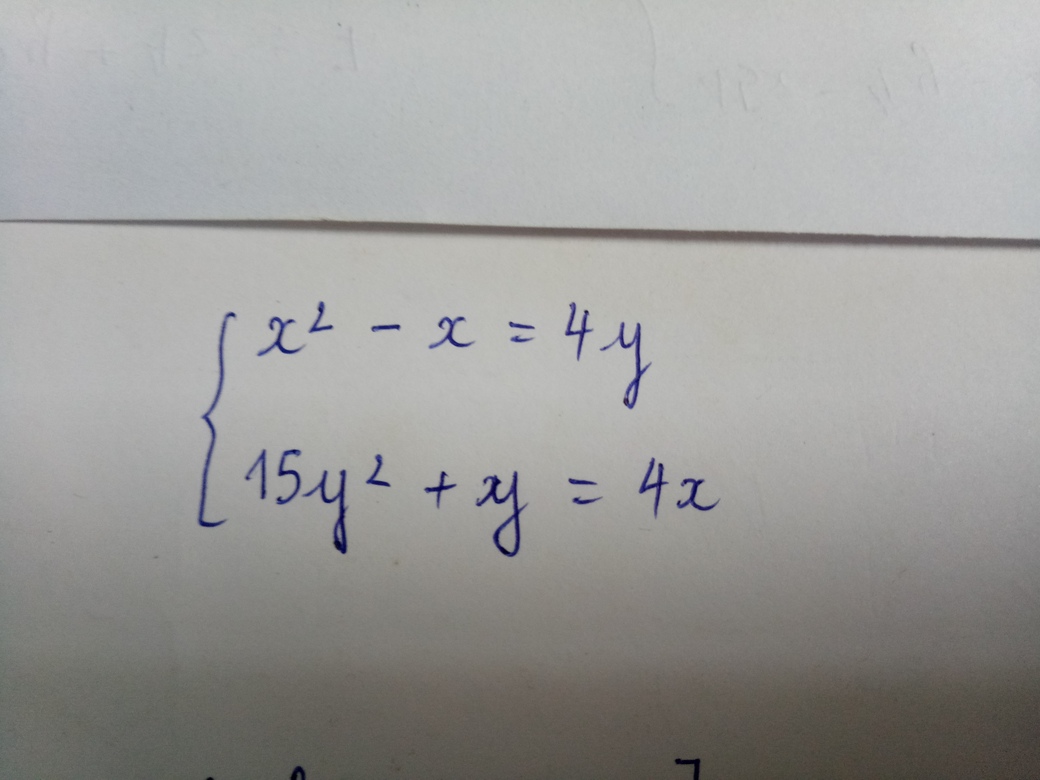 x² - x = 4y
15y² + xy = 4x